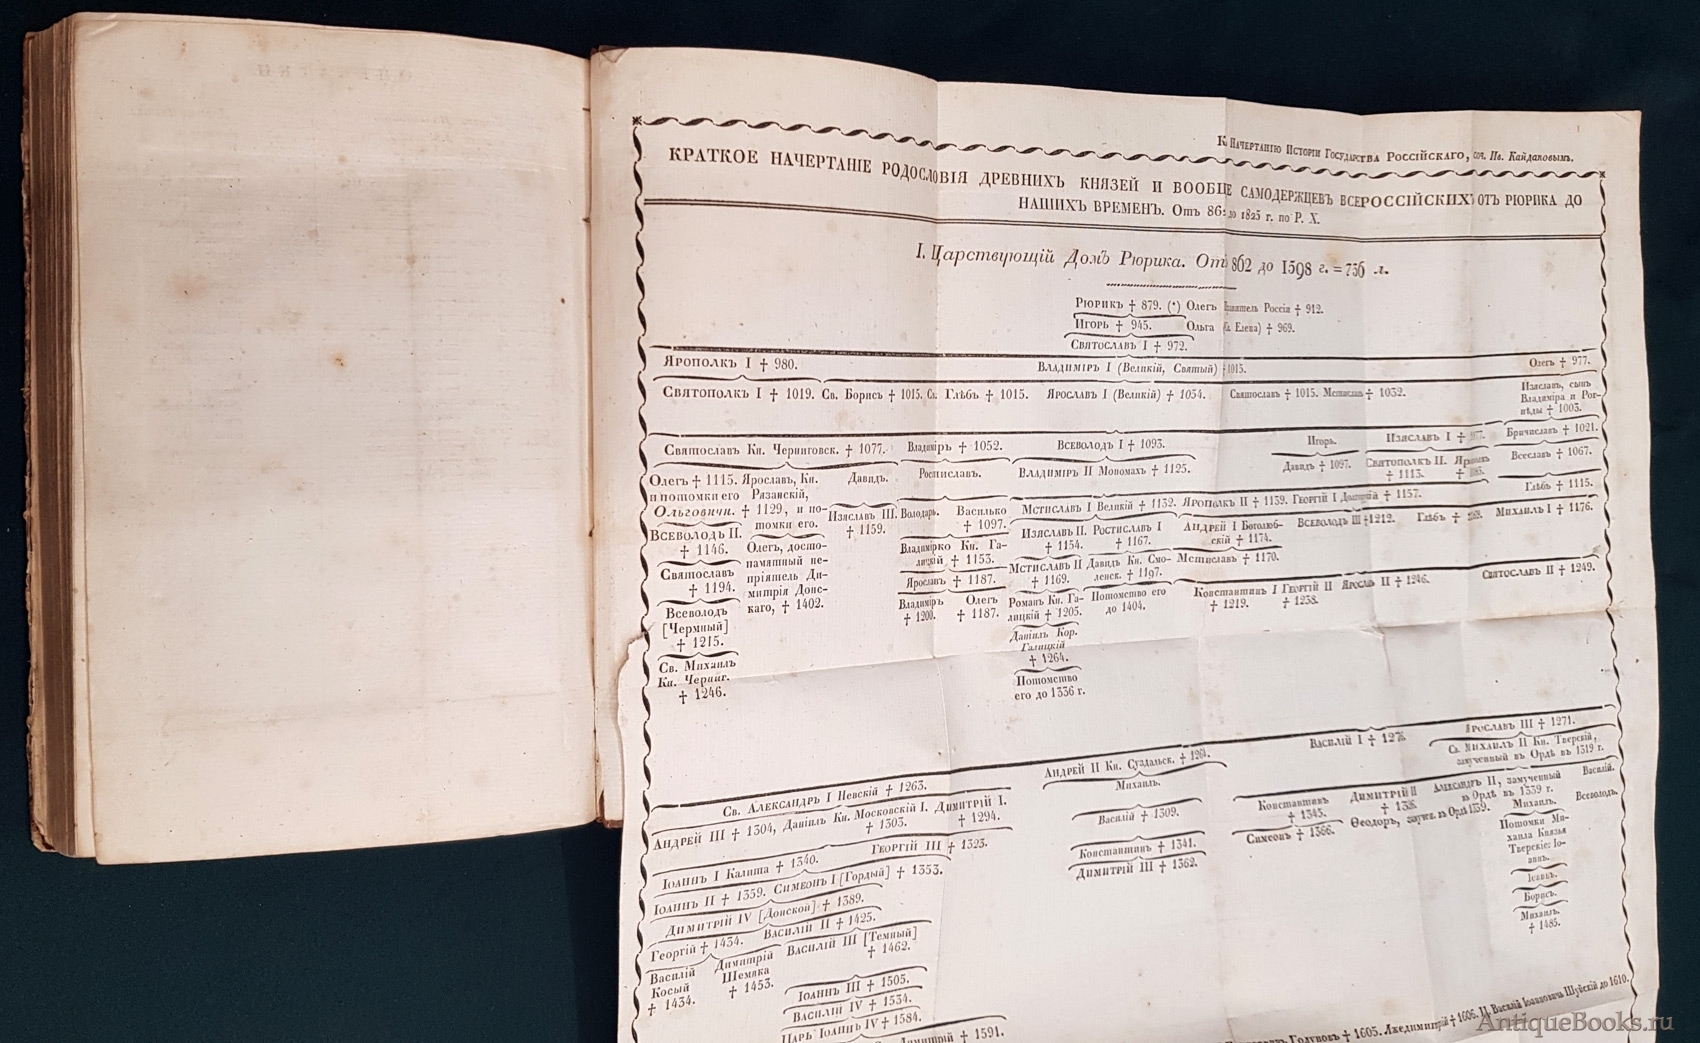 К Начертанію Исторіи Государства Россійскаго, соч. Ив. Кайдановымъ.
КРАТКОЕ НАЧЕРТАНІЕ РОДОСЛОВІЯ ДРЕВНИХЪ КНЯЗЕЙ И ВООБЩЕ САМОДЕРЖЦЕВЪ ВСЕРОССІЙСКИХЪ ОТЪ РЮРИКА ДО
НАШИХЪ ВРЕМЕНЪ. Отъ 862 до 1825 г. по Р. Х.
I. Царствующій Домъ Рюрика. Отъ 862 до 1598 г. = 736 л.
Рюрикъ † 879. (*) Олегъ Правитель Россіи † 912.
Игорь † 945. Ольга Елена) † 969.
Святославъ I † 972.
Ярополкъ I † 980. Владиміръ I (Великій, Святый) † 1015. Олегъ † 977.
Святополкъ I † 1019. Св. Борисъ † 1015. Св. Глѣбъ † 1015. Ярославъ I (Великій) † 1054. Святославъ † 1015. Мстиславъ † 1032.
Изяславъ, сынъ
Владиміра и Рог-
нѣды † 1003.
Святославъ Кн. Черниговск. † 1077. Владиміръ † 1052. Всеволодъ I † 1093. Игорь. Изяславъ I † Бричиславъ † 1021.
Олегъ † 1115. Ярославъ, Кн. Давидъ. Ростиславъ. Владиміръ II Мономахъ † 1125. Давидъ † 1097. Святополкъ II. Всеславъ † 1067.
† 1113.
и потомки его Рязанскій,
Ольговичи. † 1129, и по-
томки его.
Изяславъ III. Володарь. Василько
† 1159. † 1097.
Мстиславъ I Великій † 1132. Ярополкъ II † 1139. Георгій I † 1157. Глѣбъ † 1115.
Всеволодъ II.
† 1146.
Олегъ, досто-
памятный не-
пріятель Ди-
митрія Донс-
каго, † 1402.
Владимірко Кн. Га-
лицкій † 1153.
Изяславъ II. Ростиславъ I
† 1154. † 1167.
Андрей I Боголюб-
скій † 1174.
Всеволодъ III † 1212. Глѣбъ † Михаилъ I † 1176.
Святославъ
† 1194.
Ярославъ † 1187.
Мстиславъ II Давидъ Кн. Смо-
† 1169. ленск. † 1197.
Мстиславъ † 1170.
Всеволодъ
[Чермный]
† 1215.
Владиміръ Олегъ
† 1200. † 1187.
Романъ Кн. Га-
лицкій † 1205.
Потомство его
до 1404.
Константинъ I Георгій II Ярославъ II † 1246. Святославъ II † 1249.
† 1219. † 1238.
Даніилъ Кор.
Галицкій
† 1264.
Св. Михаилъ
Кн. Черниг.
† 1246.
Потомство
его до 1336 г.
Св. Александръ I Невскій † 1263. Андрей II Кн. Суздальск. † 1264. Василій I † Ярославъ III † 1271.
Андрей III † 1304, Даніилъ Кн. Московскій I. Димитрій I.
† 1303. † 1294.
Михаилъ.
Св. Михаилъ II Кн. Тверскій,
замученный въ Ордѣ въ 1319 г.
Василій † 1309.
Константинъ
† 1345.
Димитрій II
Александръ II, замученный
въ Ордѣ въ 1339 г.
Василій.
Іоаннъ I Калита † 1340. Георгій III † 1323.
Константинъ † 1341.
Симеонъ † 1366. Ѳеодоръ, въ Ордѣ 1339. Михаилъ. Всеволодъ.
Іоаннъ II † 1359. Симеонъ I [Гордый] † 1353.
Димитрій III † 1362.
Потомки Ми-
хаила Князья
Тверскіе: Іо-
аннъ.
Іоаннъ.
Борисъ.
Михаилъ.
† 1485.
Димитрій IV [Донской] † 1389.
Георгій † 1434. Василій II † 1425.
Василій
Косый
† 1434.
Димитрій
Шемяка
† 1453.
Василій III [Темный]
† 1462.
Іоаннъ III † 1505.
Василій IV † 1534.
Царь Іоаннъ IV † 1584.
Димитрій † 1591.
Годуновъ † 1605. Лжедимитрій † 1606. Василій Іоанновичъ Шуйскій до 1610.
AntiqueBooks.ru